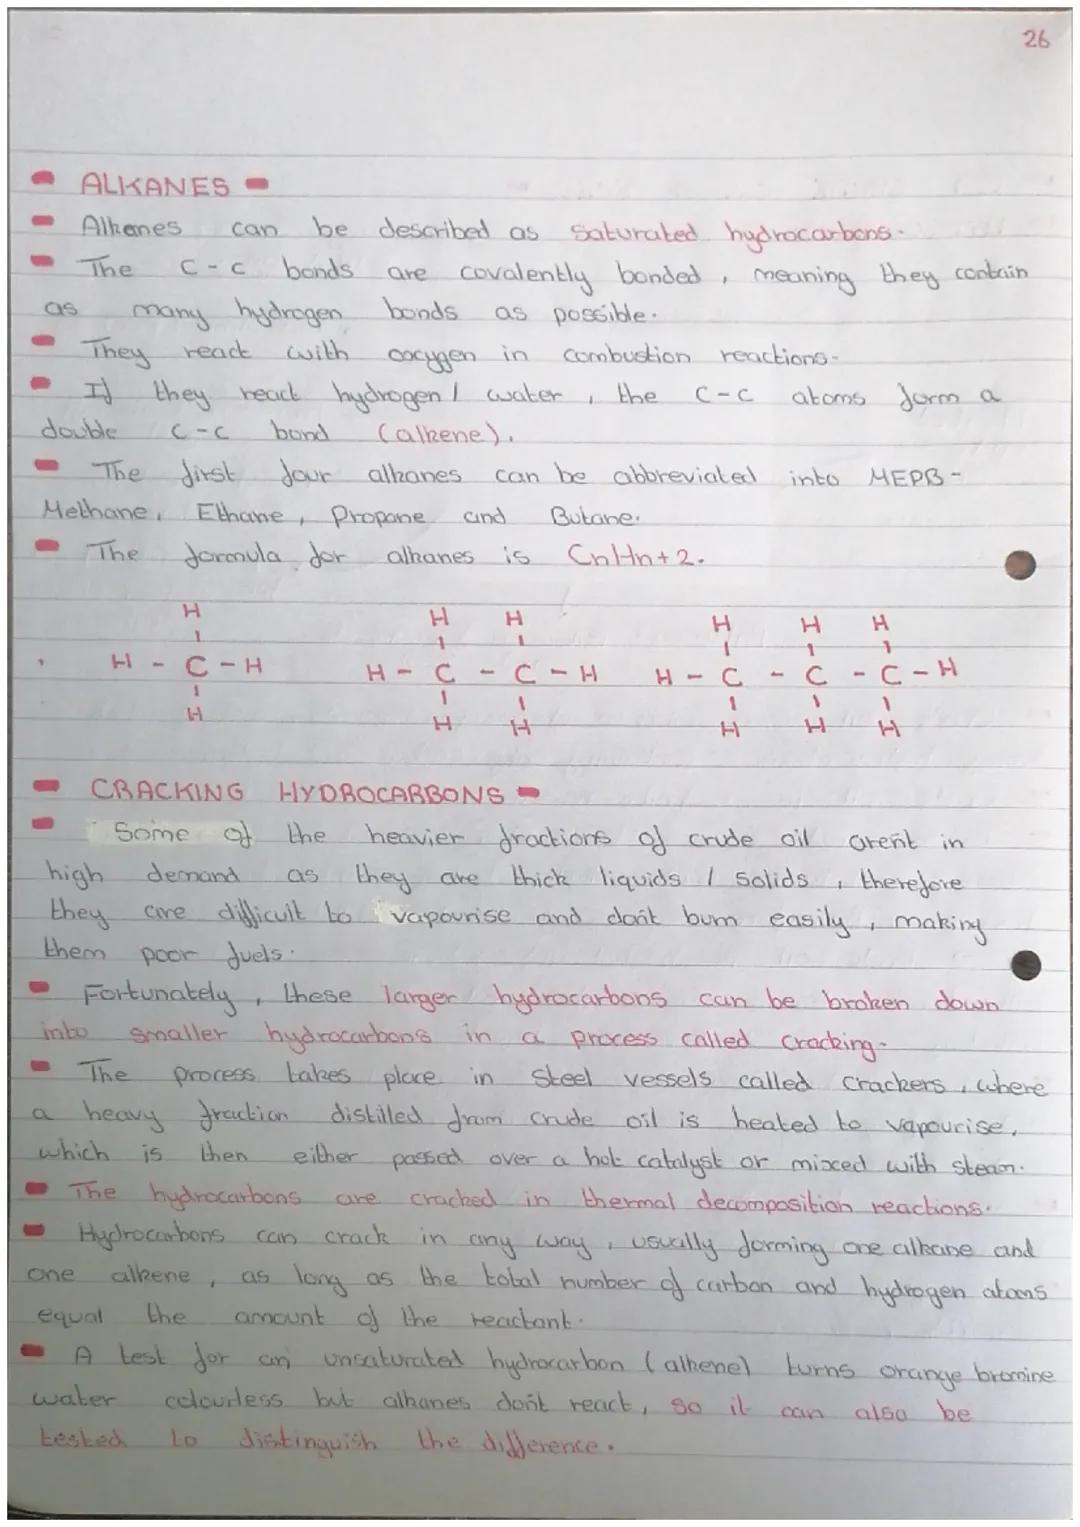 26
ALKANES
Alkanes can be described as saturated hydrocarbons.
The C-C bonds are covalently bonded, meaning they contain
as many hydrogen bonds as possible.
They react with oxygen in combustion reactions.
If they react hydrogen / water, the C-C atoms form a
double C-C bond (alkene).
The first four alkanes can be abbreviated into MEPB -
Methane, Ethane, Propane and Butane.
The formula for alkanes is CnHn+2.
H H H H H H
H - C - H H - C - C - H H - C - C - C - H
H H H H H H
CRACKING HYDROCARBONS
Some of the heavier fractions of crude oil aren't in
high demand as they are thick liquids / solids, therefore
they are difficult to vapourise and don't burn easily, making
them poor fuels.
Fortunately, these larger hydrocarbons can be broken down
into smaller hydrocarbons in a process called cracking.
The process takes place in steel vessels called crackers, where
a heavy fraction distilled from crude oil is heated to vapourise,
which is then either passed over a hot catalyst or mixed with steam.
The hydrocarbons are cracked in thermal decomposition reactions.
Hydrocarbons can crack in any way, usually forming one alkane and
one alkene, as long as the total number of carbon and hydrogen atoms
equal the amount of the reactant.
A test for an unsaturated hydrocarbon (alkene) turns orange bromine
water colourless but alkanes don't react, so it can also be
tested to distinguish the difference.